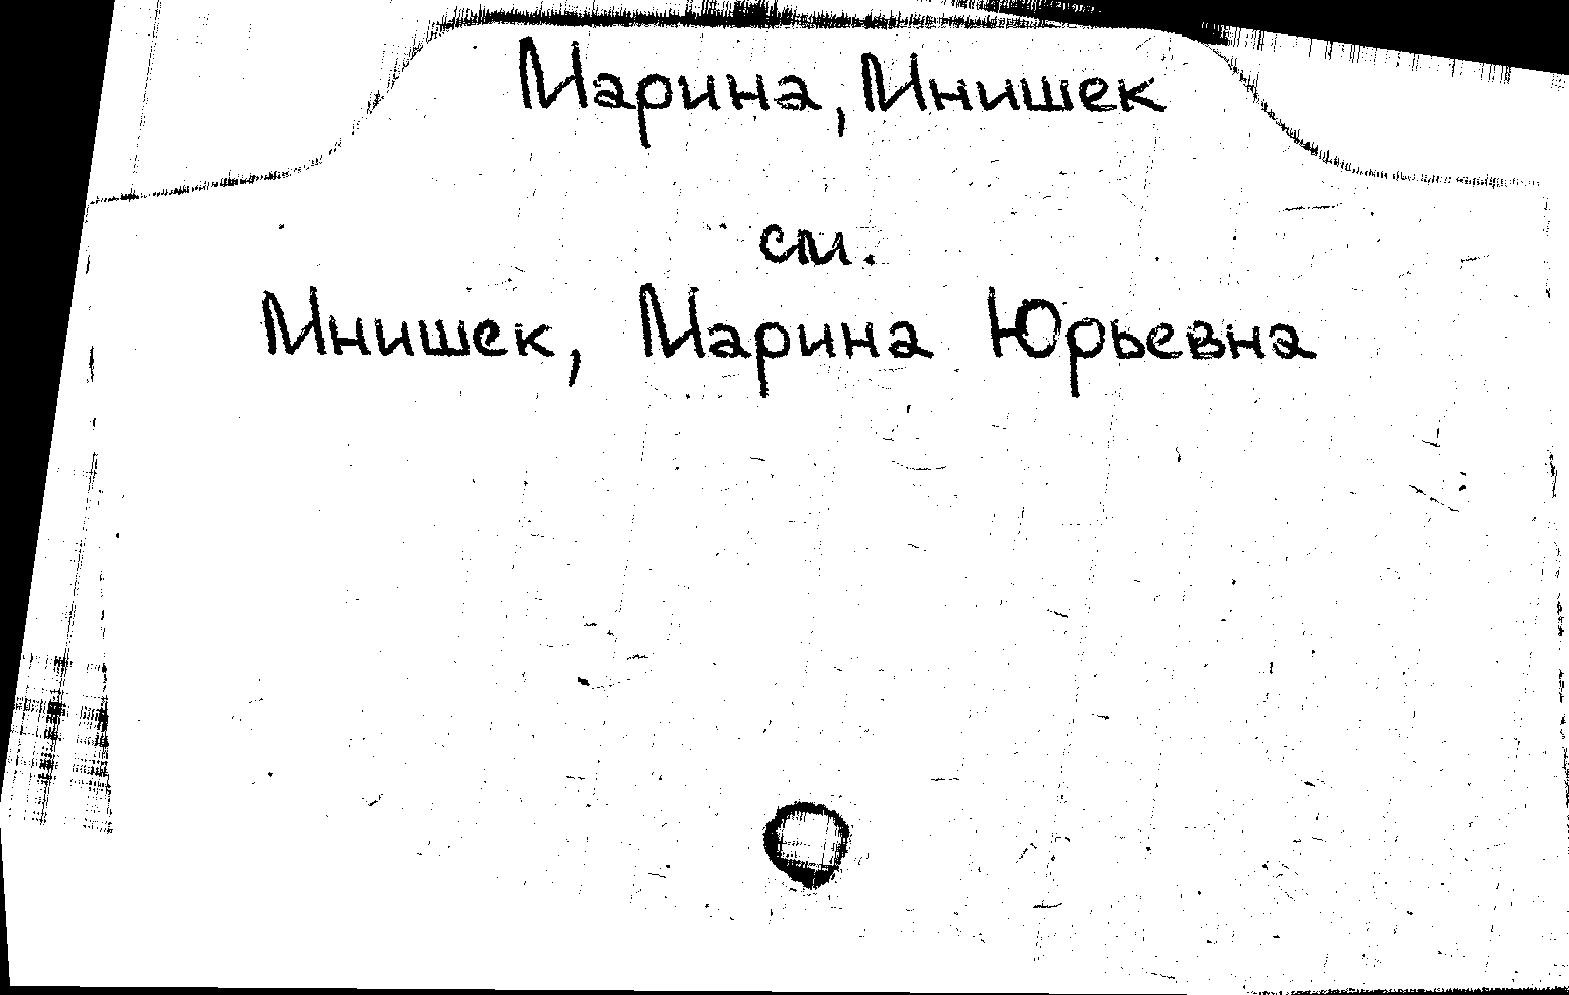 Марина, Мнишек
см.
Мнишек, Марина Юрьевна